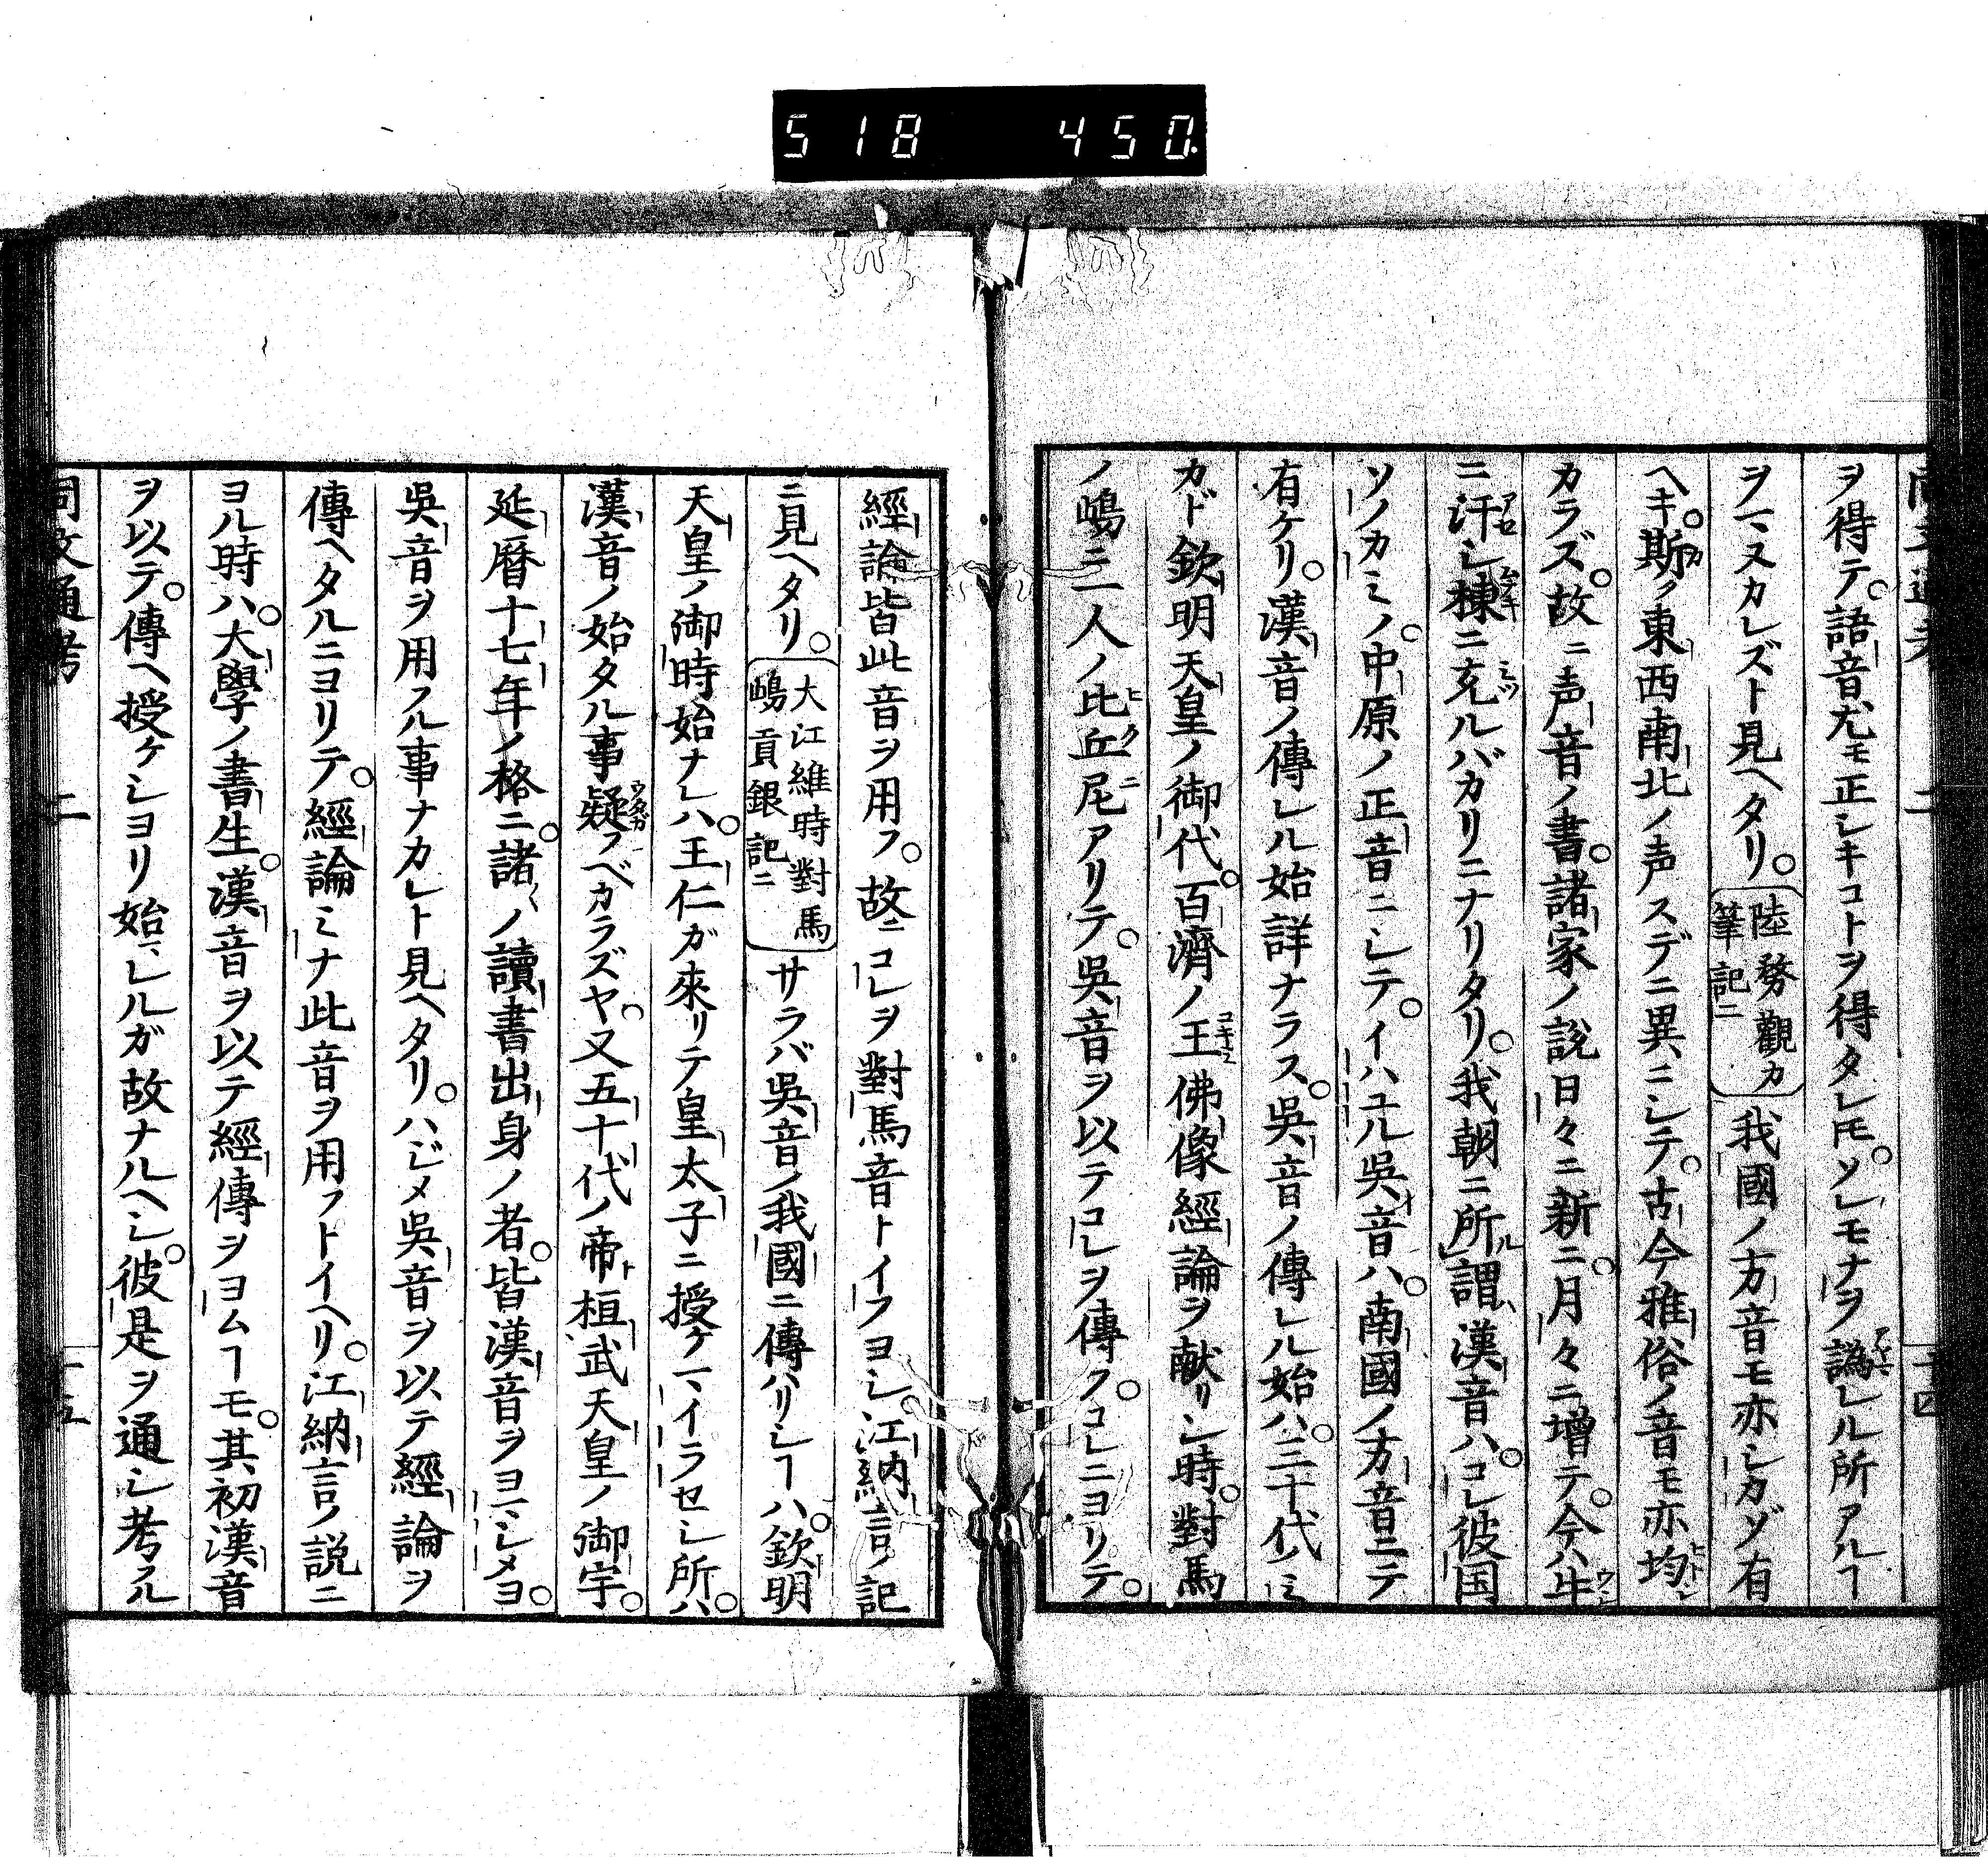 518 450
ヲ得テ。語音尤モ正シキコトヲ得タレ𪜈。ソレモナヲ譌レル所アルヿ
ヲマヌカレズト見ヘタリ。陸務觀カ筆記ニ我國ノ方音モ亦シカゾ有
ヘキ。斯ク東西南北ノ声スデニ異ニシテ。古今雅俗ノ音モ亦均
カラズ。故ニ声音ノ書。諸家ノ説日々ニ新ニ。月々ニ增テ。今ハ牛
ニ汗シ棟ニ充ルバカリニナリタリ。我朝ニ所謂漢音ハ。コレ彼国
ソノカミノ。中原ノ正音ニシテ。イハユル吳音ハ。南國ノ方音ニテ
有ケリ。漢音ノ傳レル始詳ナラス。吳音ノ傳レル始ハ。三十代ノミ
カド欽明天皇ノ御代。百濟ノ王佛像經論ヲ献リシ時。對馬
ノ嶋ニ一人ノ比丘尼アリテ。吳音ヲ以テコレヲ傳フ。コレニヨリテ。
經論皆此音ヲ用フ。故ニコレヲ對馬音トイフヨシ。江納言ノ記
ニ見ヘタリ。大江維時對馬嶋貢銀記ニサラバ吳音ノ我國ニ傳ハリシヿハ。欽明
天皇ノ御時始ナレハ。王仁ガ來リテ皇太子ニ授ケマイラセシ所ハ。
漢音ノ始タル事疑フベカラズヤ。又五十代ノ帝桓武天皇ノ御宇。
延暦十七年ノ格ニ。諸〱ノ讀書出身ノ者。皆漢音ヲヨマシメヨ。
吳音ヲ用フル事ナカレト見ヘタリ。ハジメ吳音ヲ以テ經論ヲ
傳ヘタルニヨリテ。經論ミナ此音ヲ用フトイヘリ。江納言ノ説ニ
ヨル時ハ。大學ノ書生。漢音ヲ以テ經傳ヲヨムヿモ。其初漢音
ヲ以テ。傳ヘ授ケシヨリ始マレルガ故ナルヘシ。彼是ヲ通シ考フル
同文通考 二 二十五